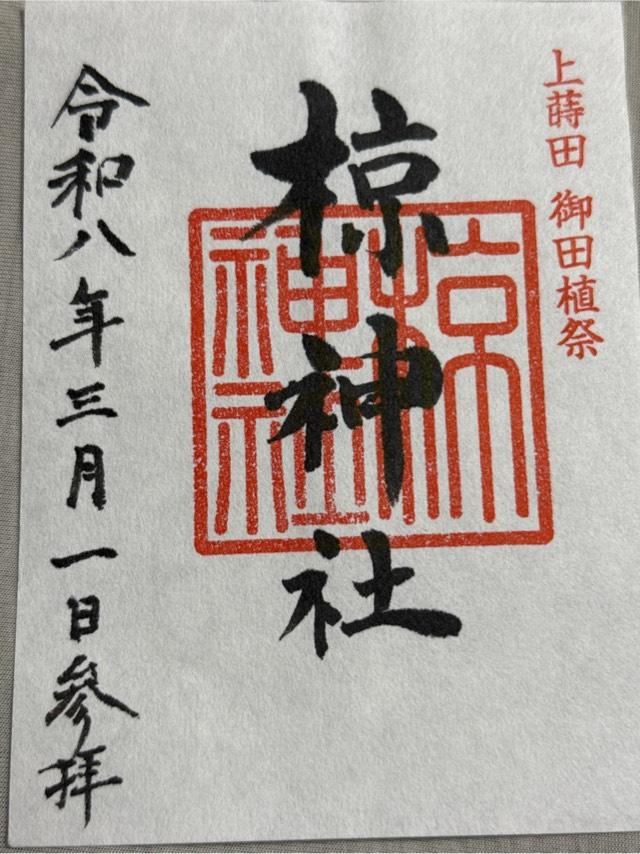 上蒔田 御田植祭
椋神社
椋神社
令和八年三月一日参拝